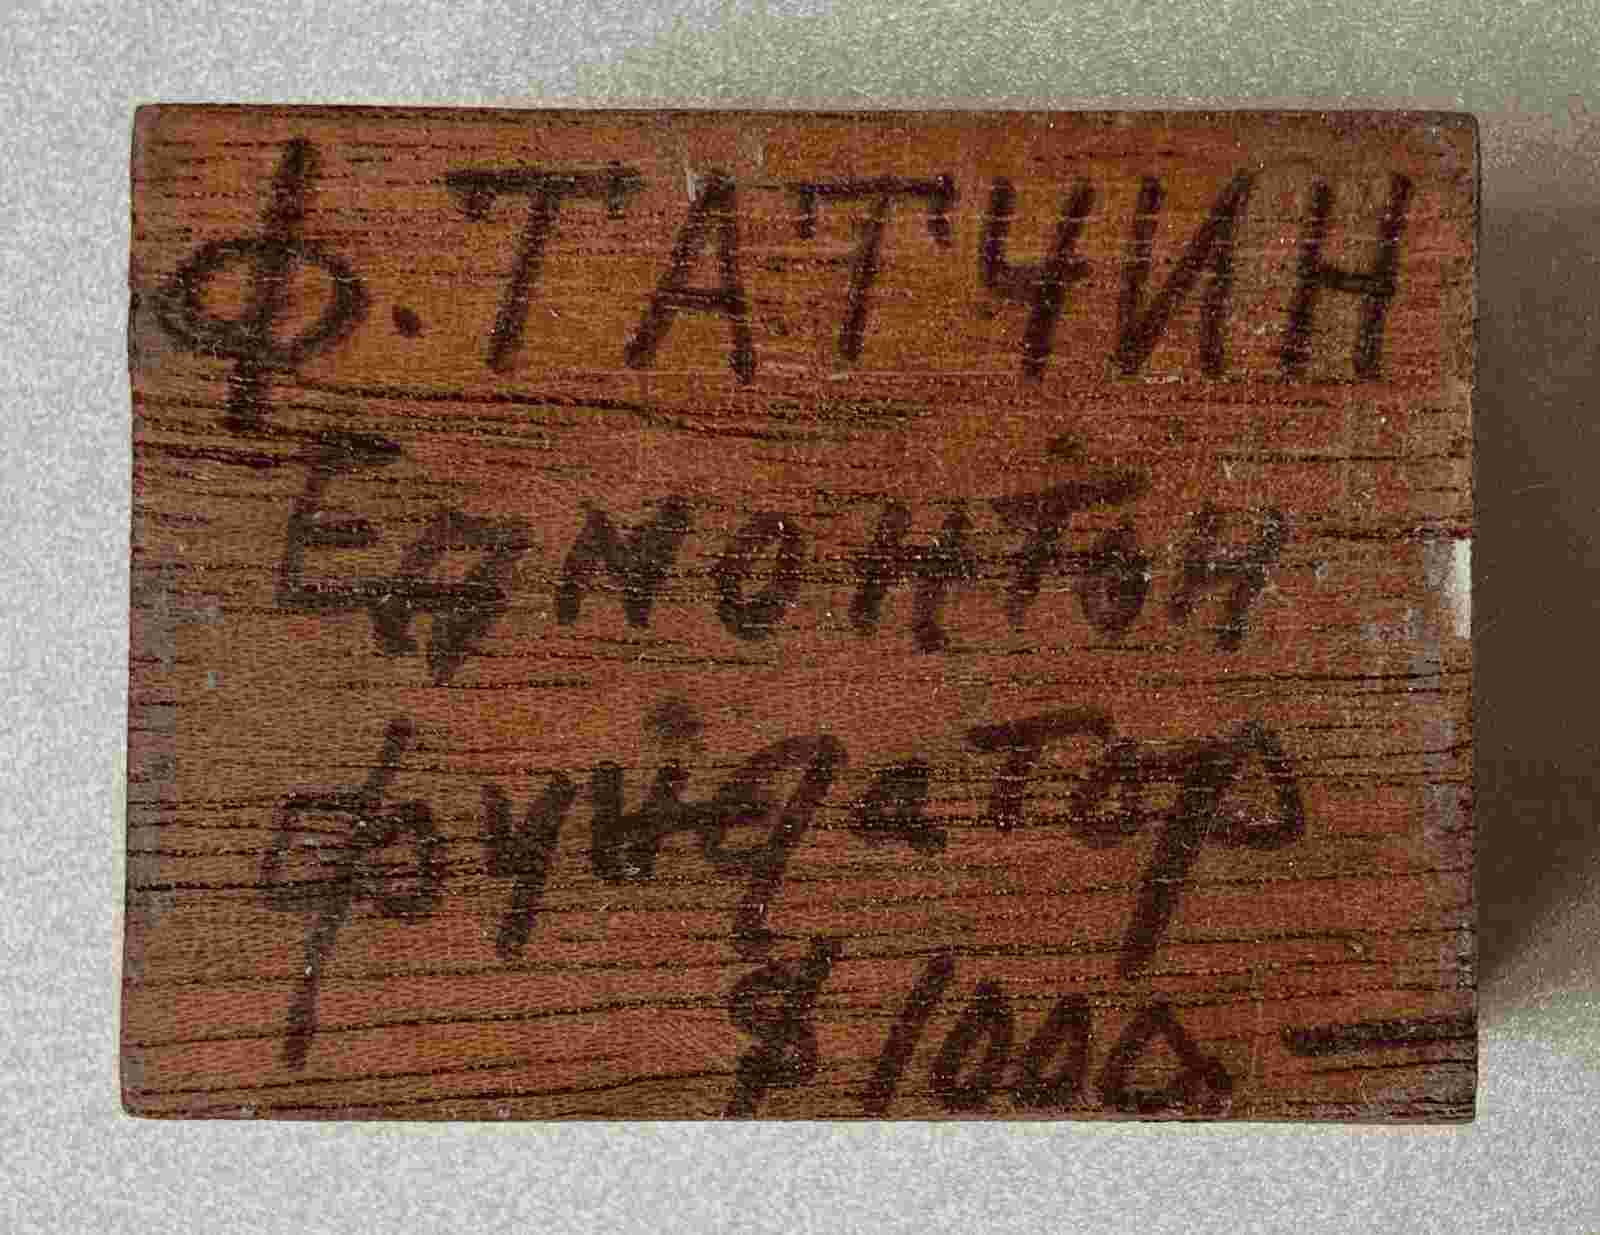 Ф. ТАТЧИН
Едмонтон
фундатор
$ 1000 —